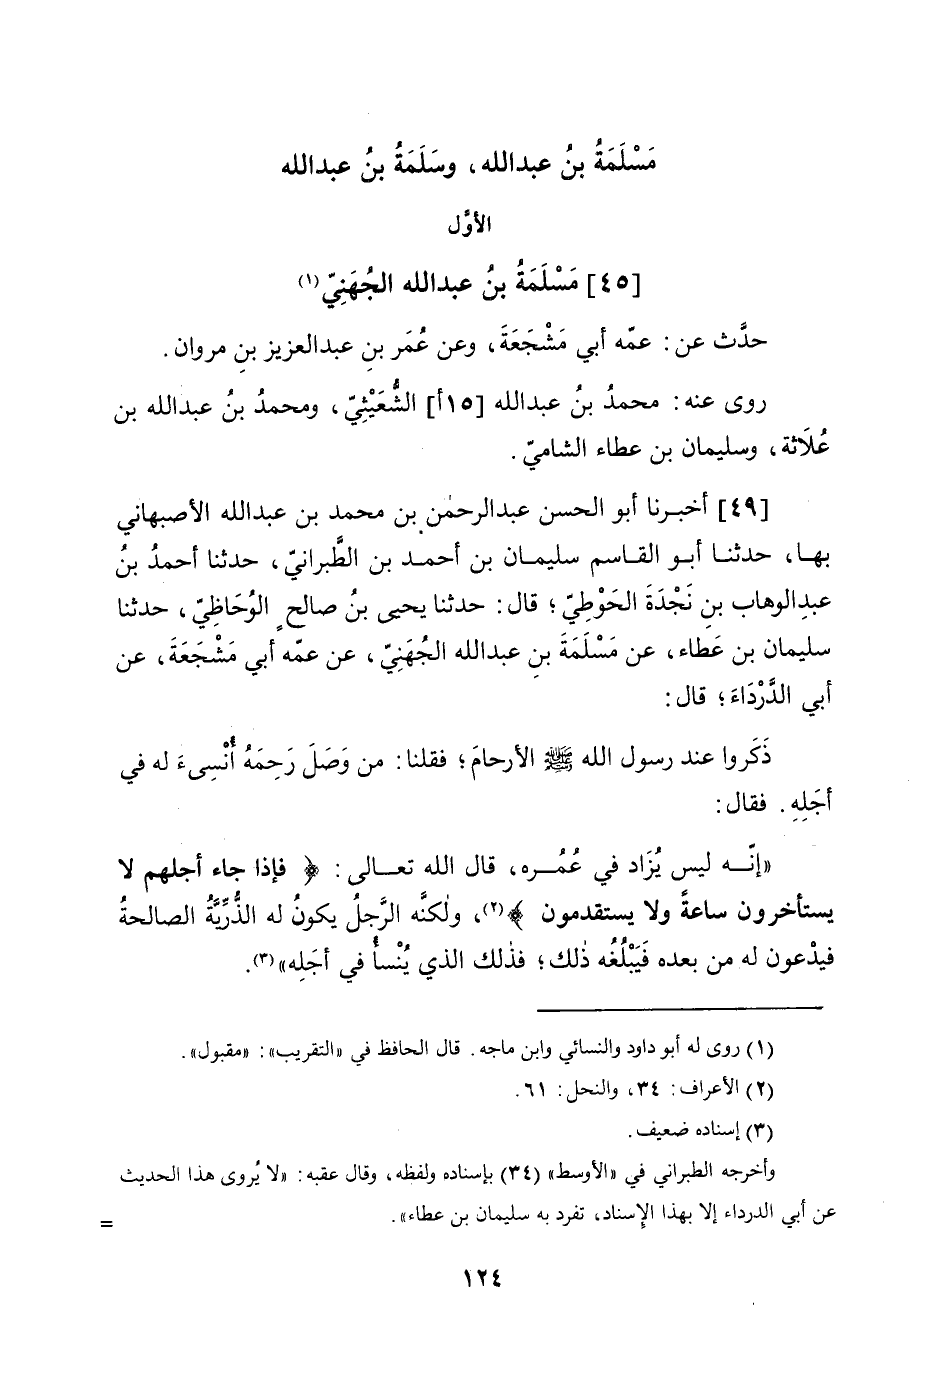 مَسْلَمَةُ بنُ عبدالله، وسَلَمَةُ بنُ عبدالله
الأوَّل
[٤٥] مَسْلَمَةُ بنُ عبدالله الجُهَنِيّ(١)
حدَّث عن: عمّه أبي مَشْجَعَةَ، وعن عُمَر بنِ عبدالعزيز بنِ مروان.
روى عنه: محمدُ بنُ عبدالله [١٥أ] الشُّعَيْثِيّ، ومحمدُ بنُ عبدالله بن
عُلَاثة، وسليمان بن عطاء الشاميّ.
[٤٩] أخبرنا أبو الحسن عبدالرحمٰن بن محمد بن عبدالله الأصبهاني
بها، حدثنا أبو القاسم سليمان بن أحمد بن الطَّبرانيّ، حدثنا أحمدُ بنُ
عبدِالوهاب بنِ نَجْدَةَ الحَوْطِيّ؛ قال: حدثنا يحيى بنُ صالحٍ الوُحَاظِيّ، حدثنا
سليمان بن عَطاء، عن مَسْلَمَةَ بنِ عبدالله الجُهَنِيّ، عن عمّه أبي مَشْجَعَةَ، عن
أبي الدَّرْدَاءَ؛ قال:
ذَكَروا عند رسول الله ﷺ الأرحامَ؛ فقلنا: من وَصَلَ رَحِمَهُ أُنْسِىءَ له في
أجَلِهِ. فقال:
«إنّه ليس يُزَاد في عُمُره، قال الله تعالى: ﴿ فإذا جاء أجلهم لا
يستأخرون ساعةً ولا يستقدمون ﴾(٢)، ولٰكنَّه الرَّجلُ يكونُ له الذُّرِّيَّةُ الصالحةُ
فيدْعون له من بعده فَيَبْلُغُه ذٰلك؛ فذٰلك الذي يُنْسأُ في أجَلِه»(٣).
(١) روى له أبو داود والنسائي وابن ماجه. قال الحافظ في «التقريب»: «مقبول».
(٢) الأعراف: ٣٤، والنحل: ٦١.
(٣) إسناده ضعيف.
وأخرجه الطبراني في «الأوسط» (٣٤) بإسناده ولفظه، وقال عقبه: «لا يُروى هذا الحديث
عن أبي الدرداء إلا بهذا الإسناد، تفرد به سليمان بن عطاء». =
١٢٤